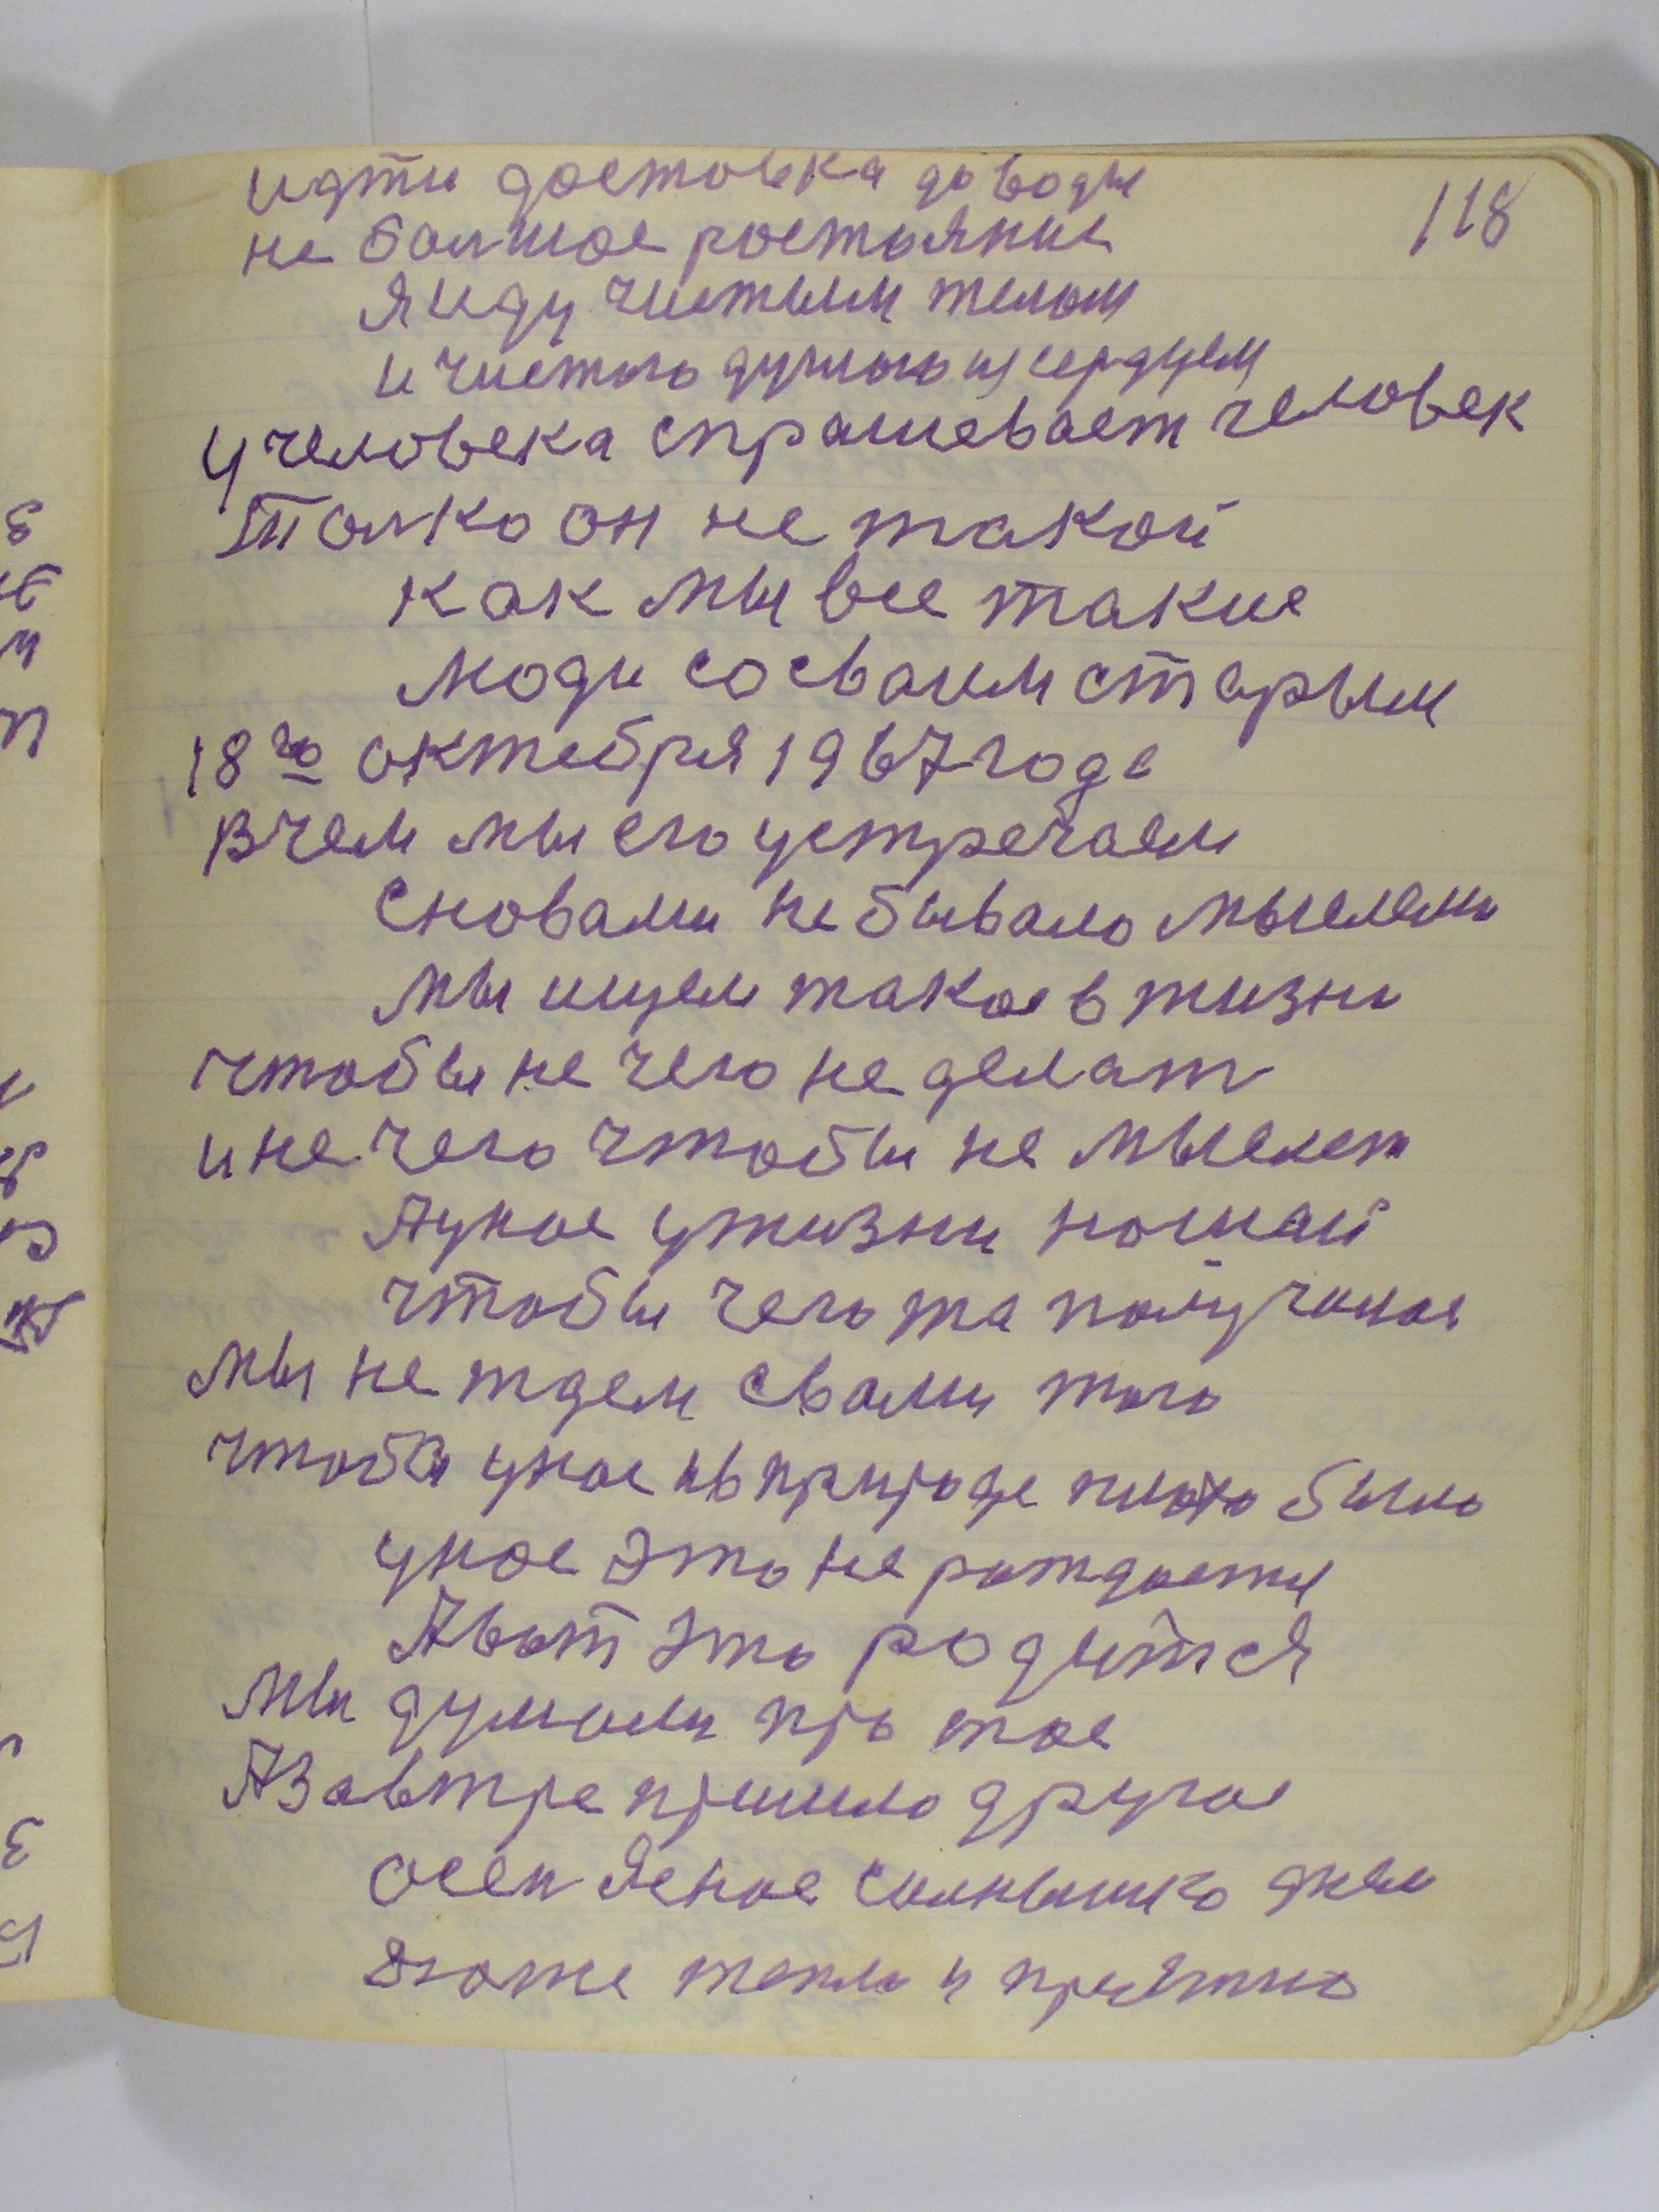 118
идти достовка до воды
не болшое ростояние
я иду чистым телом
и чистого душого и сердцем
у человека спрашевает человек
Толко он не такой
как мы все такие
люди со сваим старым
18го октебря 1967 года
В чем мы его устречаем
сновами небывало мыслями
мы ищем такое в жизни
чтобы не чего не делат
и не чего чтобы не мыслет
А уное ужизни
чтобы чего та получилос
мы не ждем свами того
чтобы уное ув природе плохо было
уное это не рождается
А вот это родится
мы думали про тое
А завтре пришло другое
осен Ясное солнышко днем
даже тепло и приятно